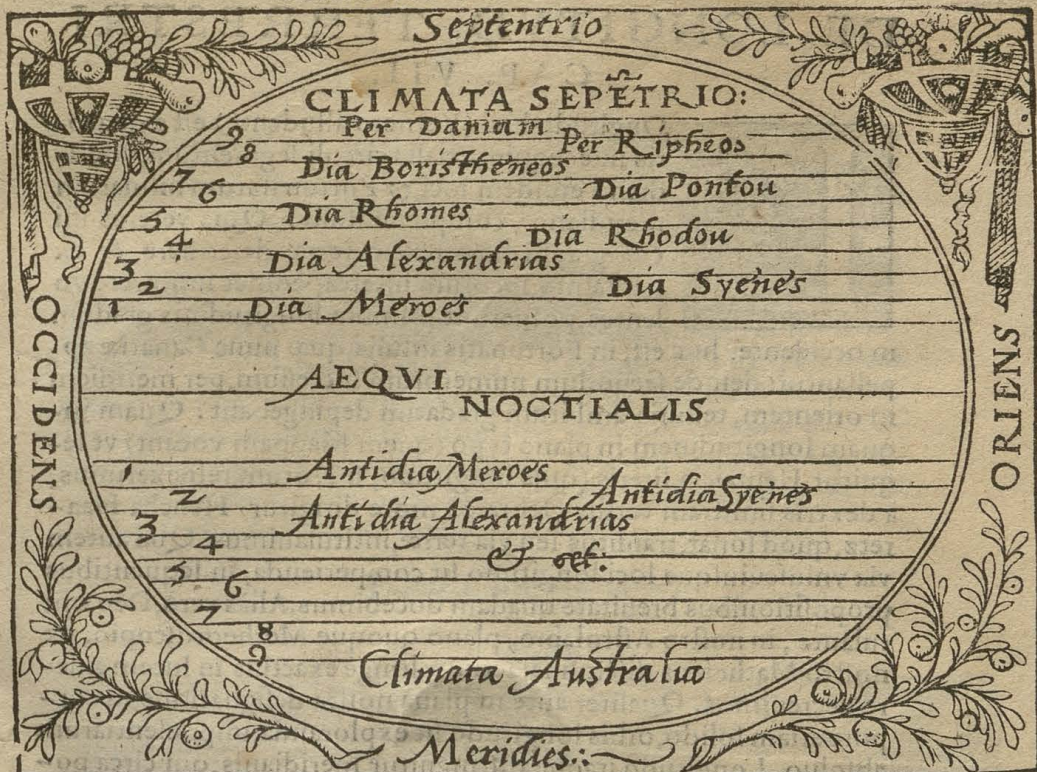 Septentrio
CLIMATA SEPE͂TRIO:
9 Per Daniam
8 Per Ripheos
7 Dia Boristheneos
6 Dia Pontou
5 Dia Rhomes
4 Dia Rhodou
3 Dia Alexandrias
2 Dia Syenes
1 Dia Meroes
OCCIDENS
ORIENS
AEQVI
NOCTIALIS
1 Antidia Meroes
2 Antidia Syenes
3 Antidia Alexandrias
4
5
6
7
8
9
Climata Australia
Meridies: